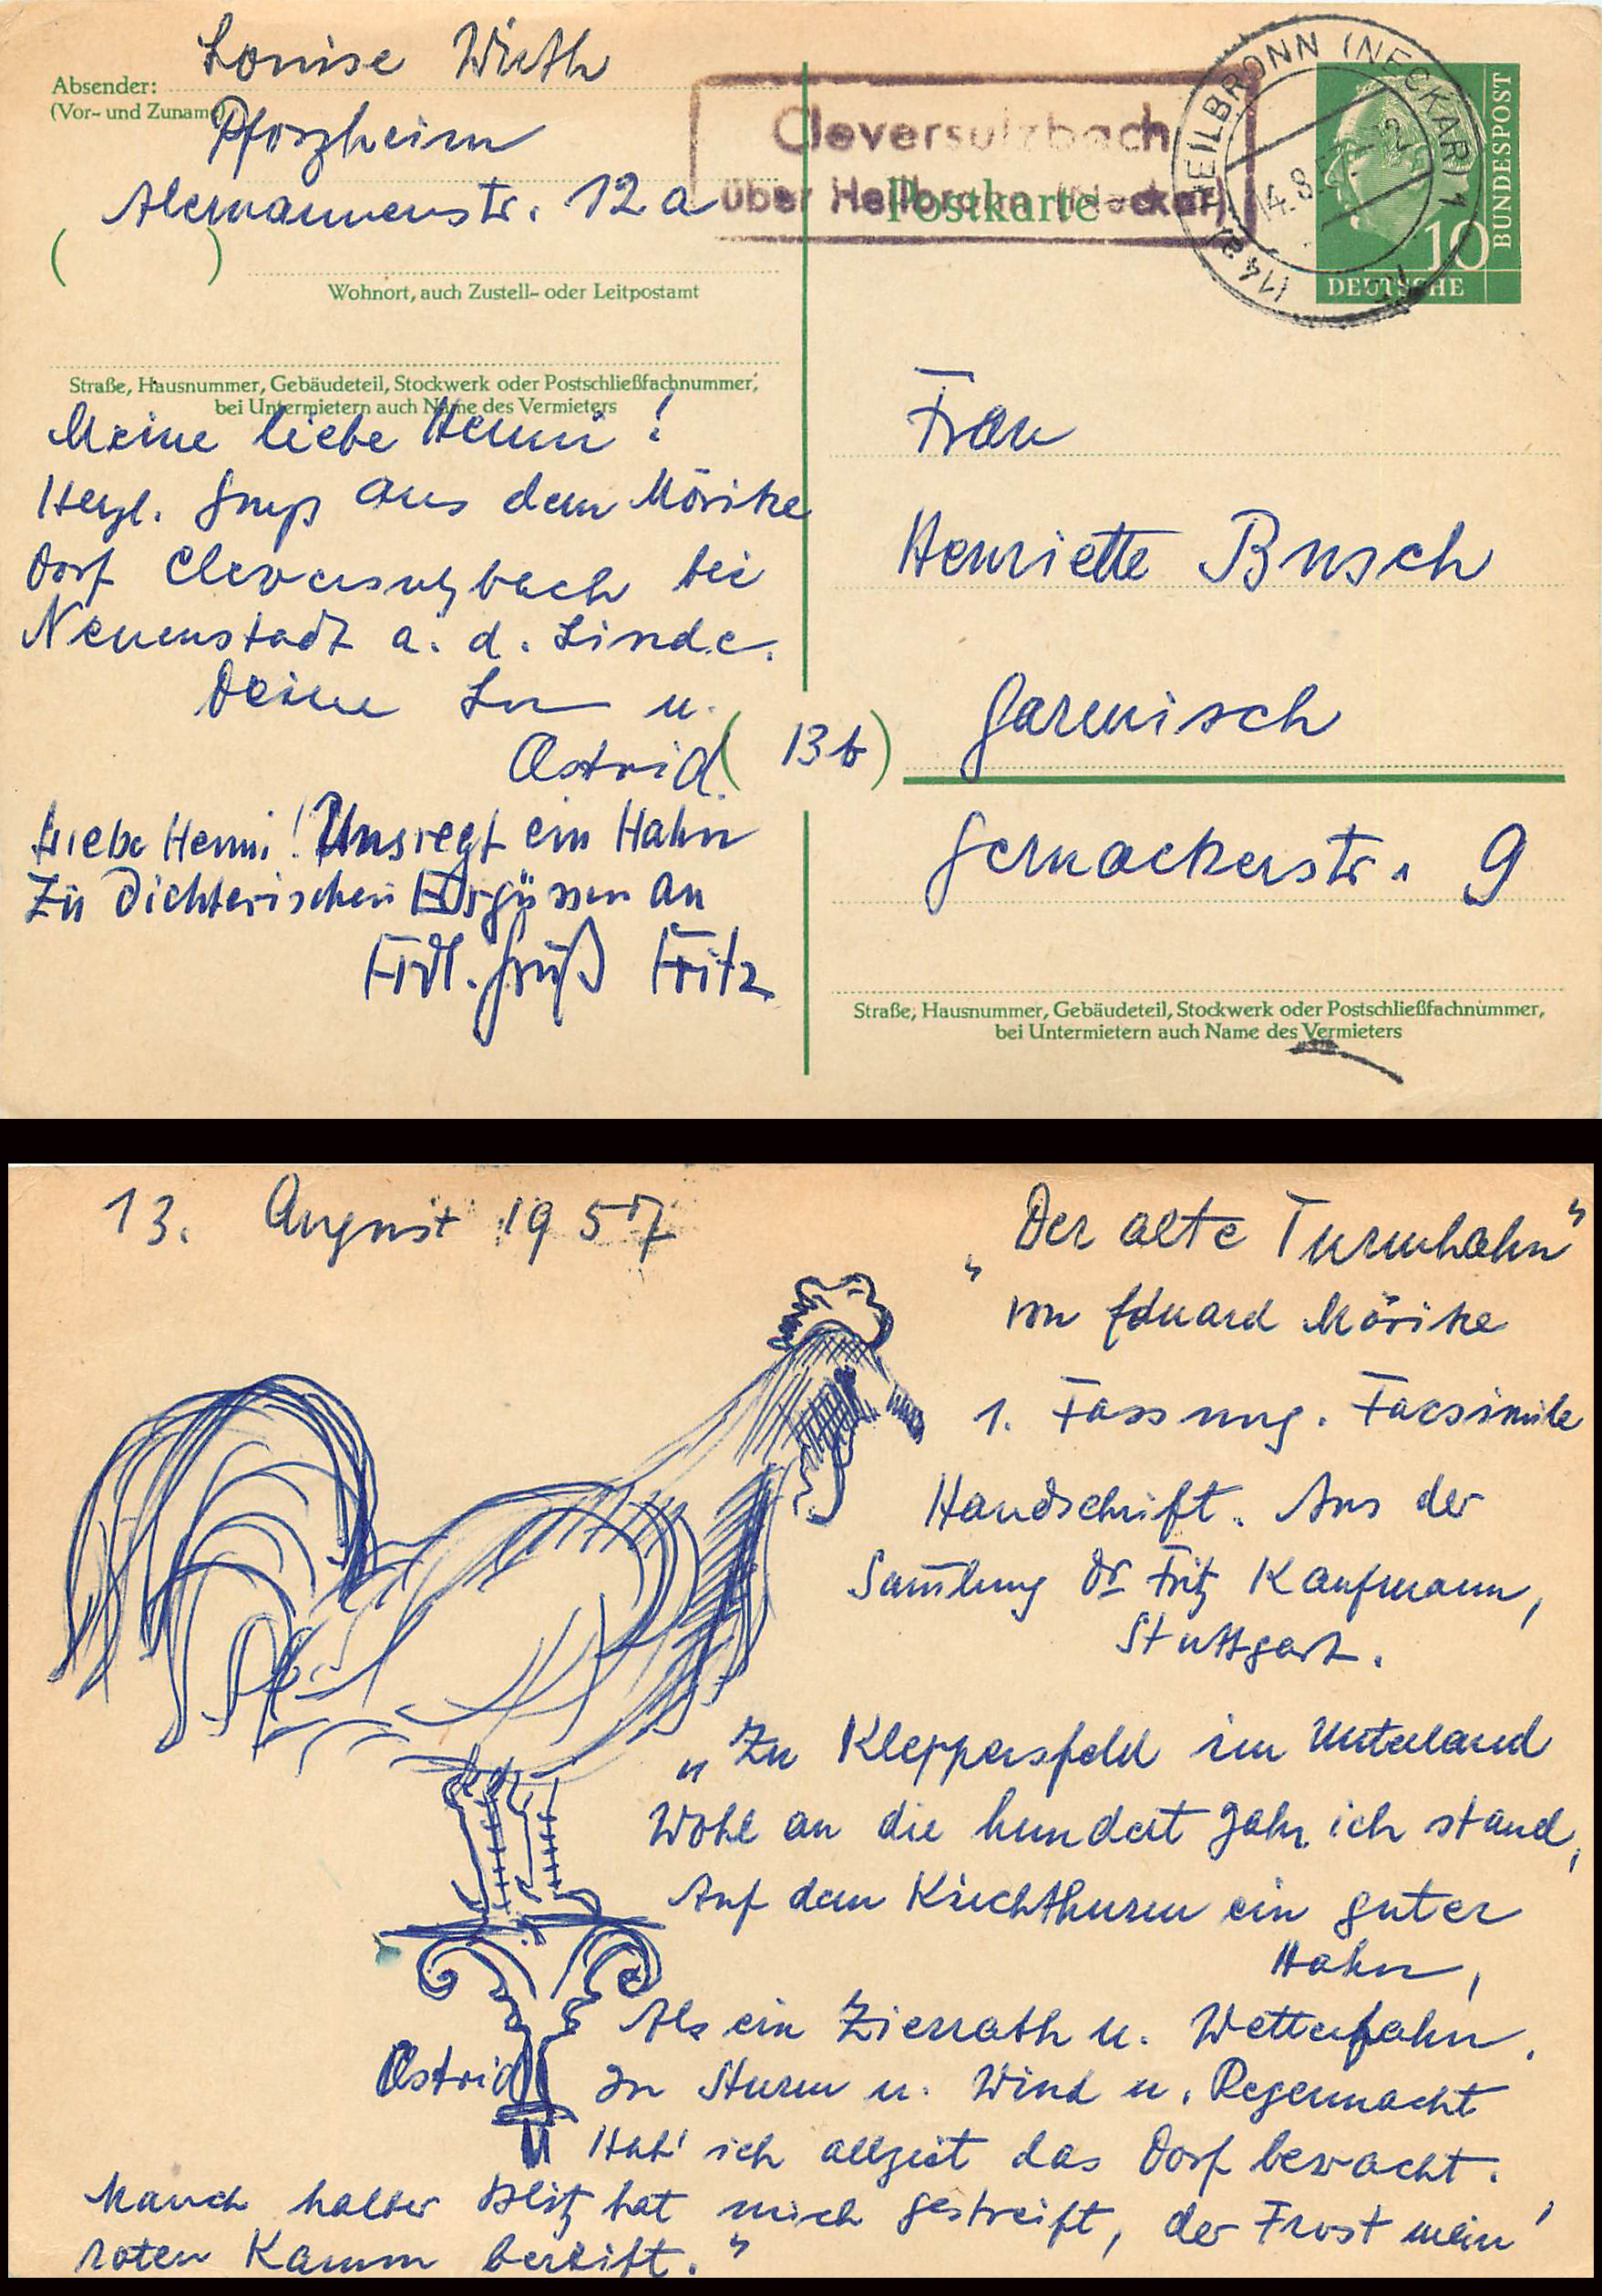 Louise Wirth
Absender:
(Vor- und Zuname)
Pforzheim
Alemannenstr. 12a
Wohnort, auch Zustell- oder Leitpostamt
Straße, Hausnummer, Gebäudeteil, Stockwerk oder Postschließfachnummer,
bei Untermietern auch Name des Vermieters
Cleversulzbach
über Heilbronn (Neckar)
Postkarte
(14a) HEILBRONN (NECKAR) 1
14.8.
10
DEUTSCHE
BUNDESPOST
Meine liebe Henni!
Herzl. Gruß aus dem Mörike
Dorf Cleversulzbach bei
Neuenstadt a. d. Linde.
Deine Lu u.
Astrid.
Liebe Henni! Uns regt ein Hahn
Zu dichterischen Ergüssen an
Frdl. Gruß Fritz
Frau
Henriette Busch
(13b) Garmisch
Gernackerstr. 9
Straße, Hausnummer, Gebäudeteil, Stockwerk oder Postschließfachnummer,
bei Untermietern auch Name des Vermieters
13. August 1957
„Der alte Turmhahn"
von Eduard Mörike
1. Fassung. Facsimile
Handschrift. Aus der
Sam̄lung Dr Fritz Kaufmann,
Stuttgart.
„Zu Kleppersfeld im Unterland
Wohl an die hundert Jahr ich stand,
Auf dem Kirchthurm ein guter
Hahn,
Als ein Zierrath u. Wetterfahn.
In Sturm u. Wind u. Regennacht
Hab' ich allzeit das Dorf bewacht.
Manch halber Blitz hat mich gestreift, der Frost mein'
roten Kamm bereift."
Astrid